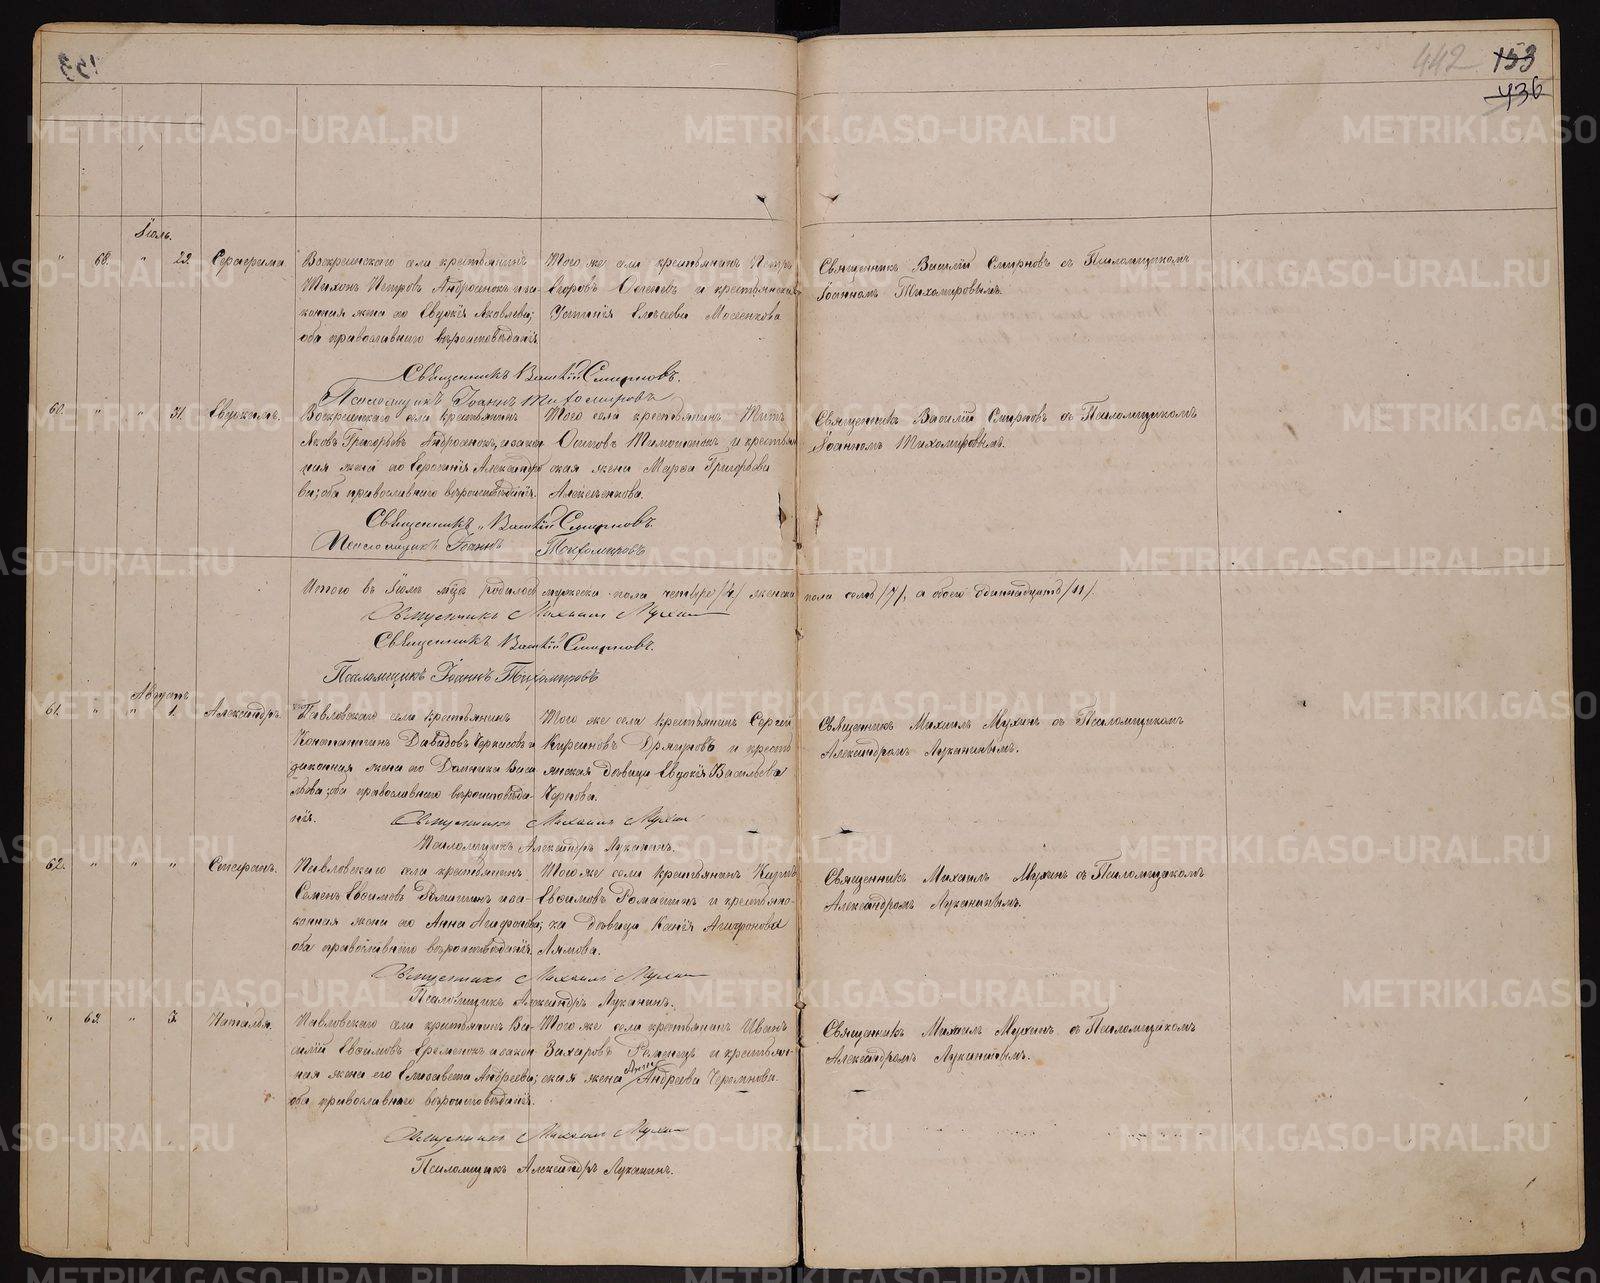 153
442 153
436
Іюль.
" 68. " 29. Серафима.
Воскресенскаго села крестьянинъ
Тихонъ Петровъ и за-
конная жена его Евдокія Яковлева;
оба православнаго вѣроисповѣданія.
Того же села крестьянинъ Петръ
Егоровъ и крестьянская
Устинія Елисеева
Священникъ Василій Смирновъ съ Псаломщикомъ
Іоанномъ Тихомировымъ.
Священникъ Василій Смирновъ.
Псаломщикъ Іоаннъ Тихомировъ
60. " " 31. Евдокимъ.
Воскресенскаго села крестьянинъ
Яковъ Григорьевъ и закон
ная жена его Александро
ва; оба православнаго вѣроисповѣданія.
Того села крестьянинъ Титъ
Осиповъ и крестьян
ская жена Марфа Григорьева
Алексѣенкова.
Священникъ Василій Смирновъ съ Псаломщикомъ
Іоанномъ Тихомировымъ.
Священникъ Василій Смирновъ.
Псаломщикъ Іоаннъ Тихомировъ
Итого въ Іюлѣ м-цѣ родилось мужеска пола четыре /4/ женска пола семь /7/, а обоего одиннадцать /11/.
Священникъ Михаилъ Мухинъ
Священникъ Василій Смирновъ.
Псаломщикъ Іоаннъ Тихомировъ
Августъ
61. " " 1. Александръ.
Павловскаго села крестьянинъ
Константинъ Давидовъ Черкасовъ и
законная жена его Домника Васи
льева; оба православнаго вѣроисповѣда-
нія.
Того же села крестьянинъ Сергій
и кресть
янская дѣвица Евдокія Васильева
Чернова.
Священникъ Михаилъ Мухинъ съ Псаломщикомъ
Александромъ Луканинымъ.
Священникъ Михаилъ Мухин
Псаломщикъ Александръ Луканинъ.
62. " " " Стефанъ.
Павловскаго села крестьянинъ
Семенъ Евсимовъ и за-
конная жена его Анна Агафонова;
оба православнаго вѣроисповѣданія.
Того же села крестьянинъ
Евсимовъ и крестьянс-
ка дѣвица Ксенія Агафонова
Лямова.
Священникъ Михаилъ Мухинъ съ Псаломщикомъ
Александромъ Луканинымъ.
Священникъ Михаилъ Мухин
Псаломщикъ Александръ Луканинъ.
" 69. " 3. Наталія.
Павловскаго села крестьянинъ Ва-
силій Евсимовъ Еременокъ и закон
ная жена его Елизавета Андреева;
оба православнаго вѣроисповѣданія.
Того же села крестьянинъ Иванъ
Захаровъ и крестьян-
ская жена Анна Андреева
Священникъ Михаилъ Мухинъ съ Псаломщикомъ
Александромъ Луканинымъ.
Священникъ Михаилъ Мухин
Псаломщикъ Александръ Луканинъ.
METRIKI.GASO-URAL.RU